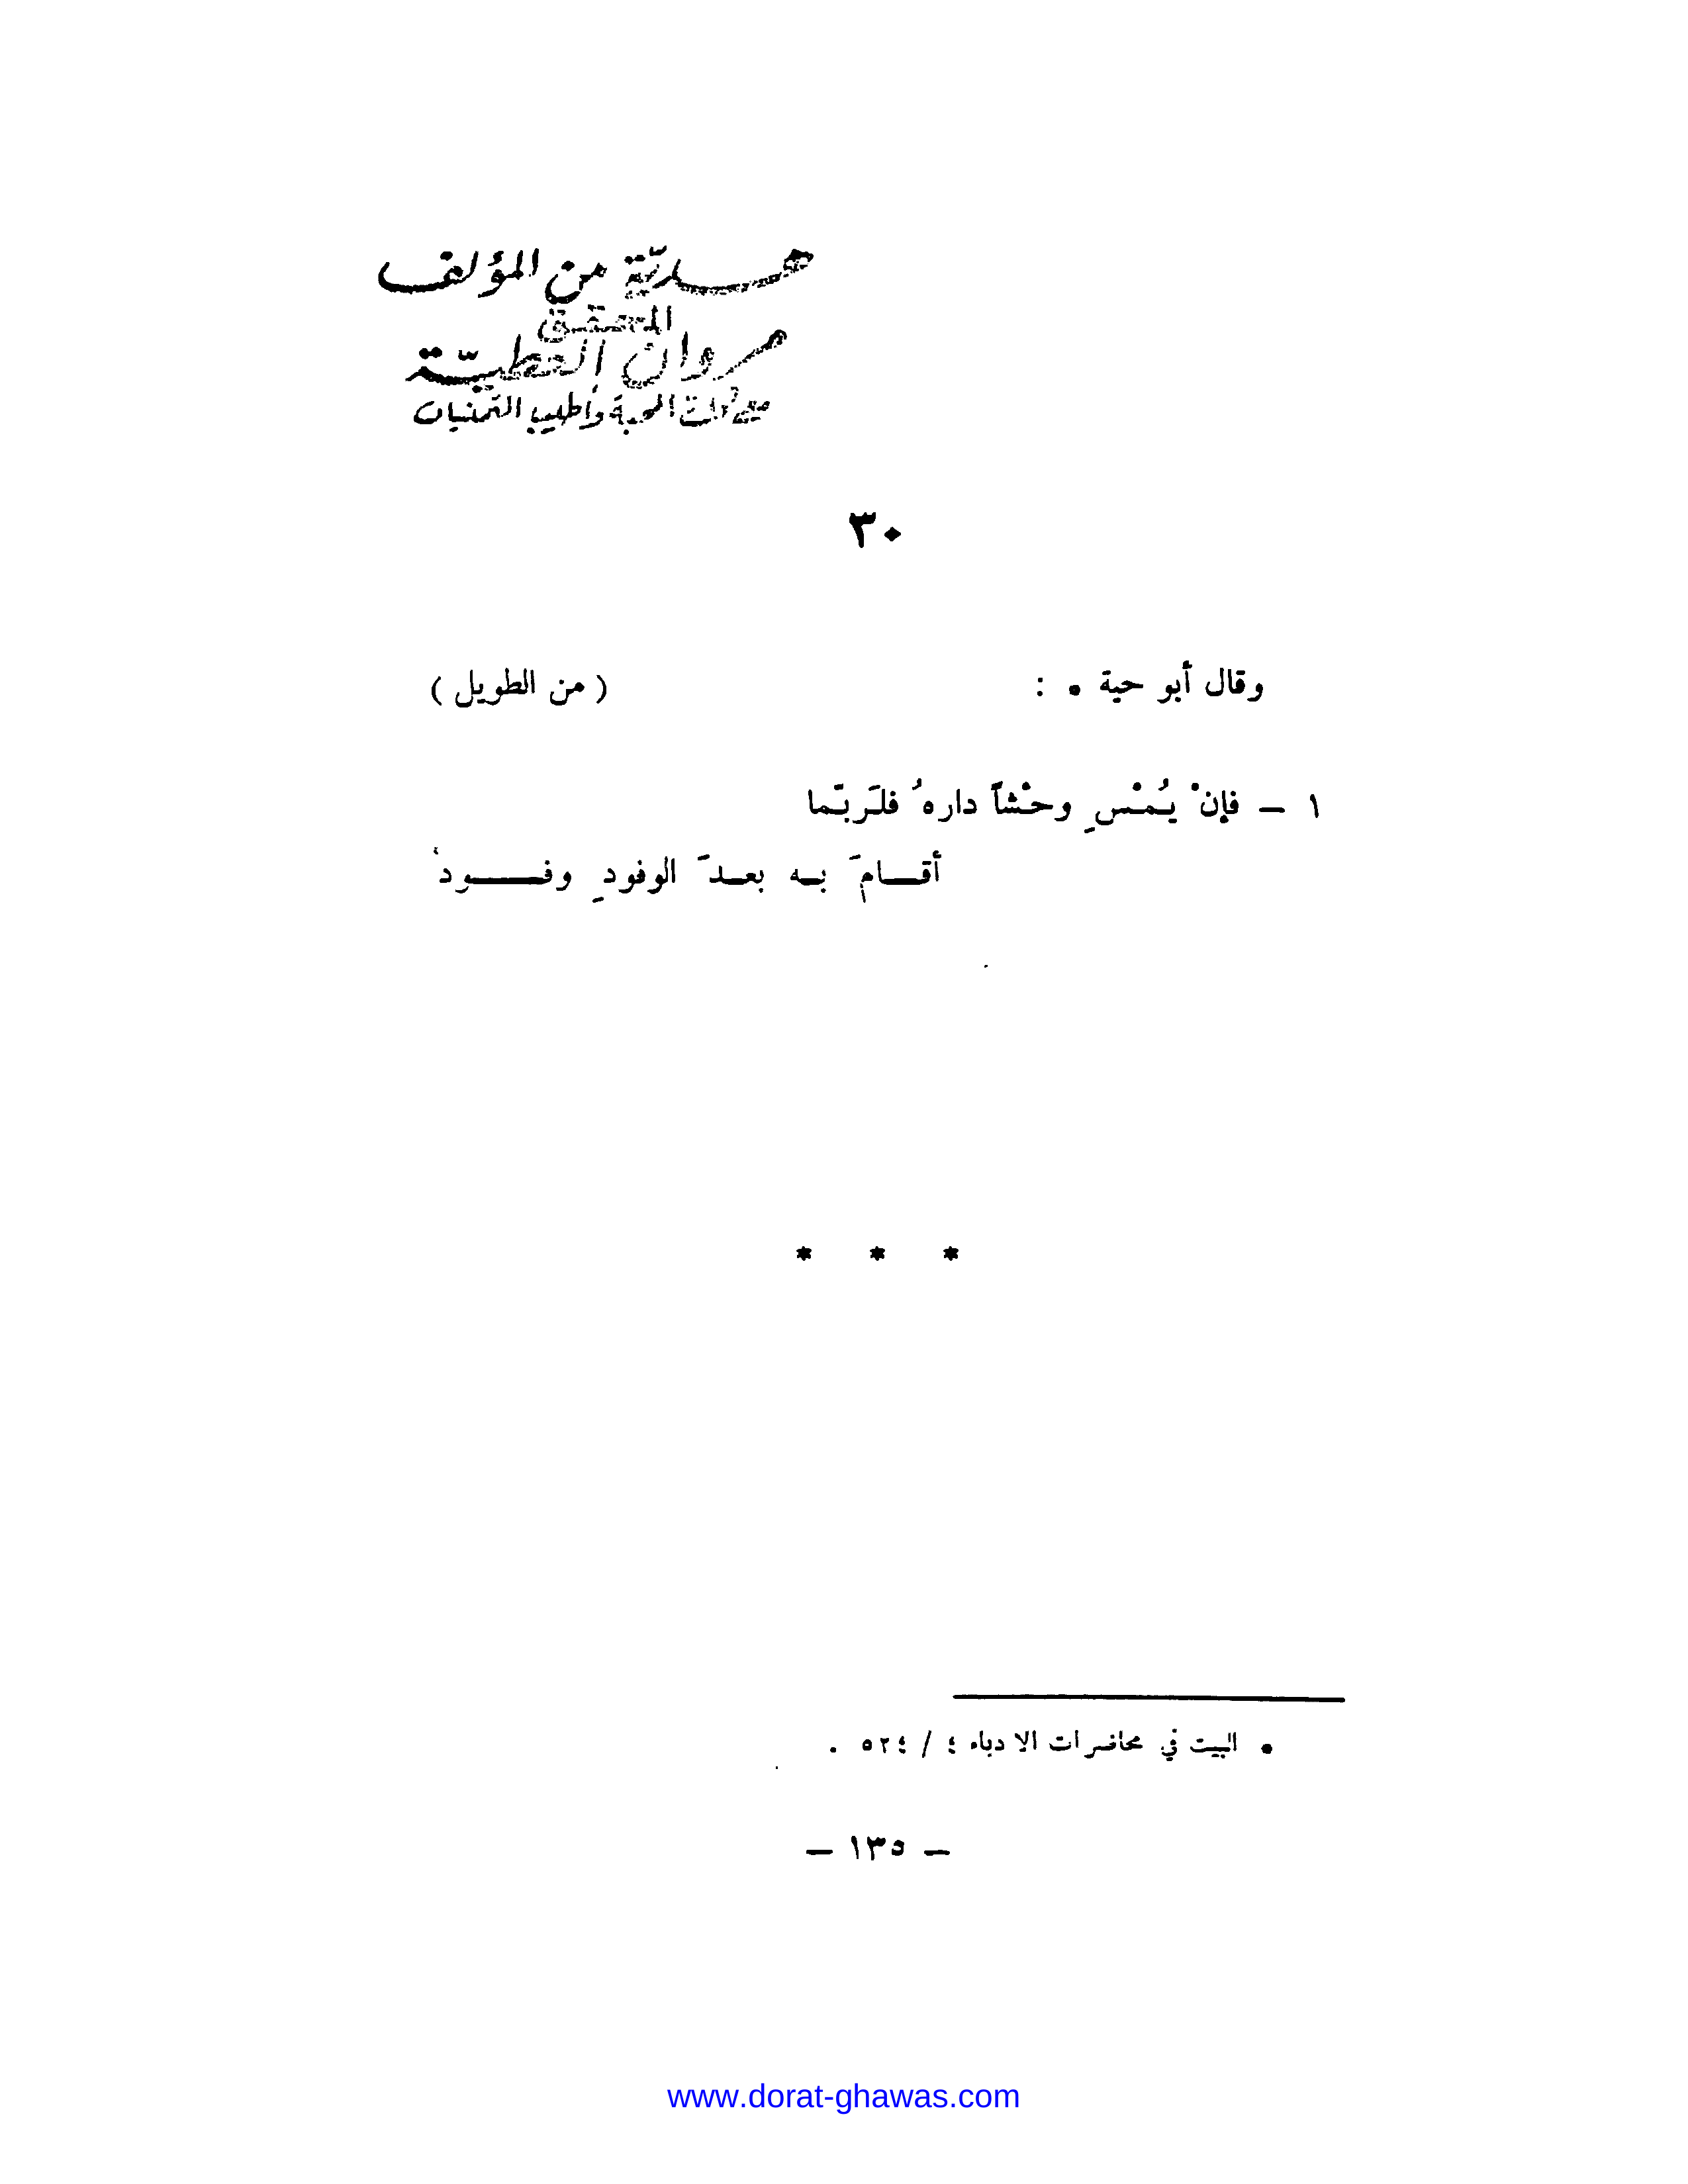 هـديّة من المؤلف
المحقق
مروان العطيّة
المحبة وأطيب التمنيات
٣٠
وقال أبو حية • : ( من الطويل )
١ – فإنْ يُمْسِ وحْشاً دارهُ فلَربّما
أقــامَ بـه بعـدَ الوفودِ وفـــود
* * *
• البيت في محاضرات الادباء ٤ / ٥٢٤ .
– ١٣٥ –
www.dorat-ghawas.com